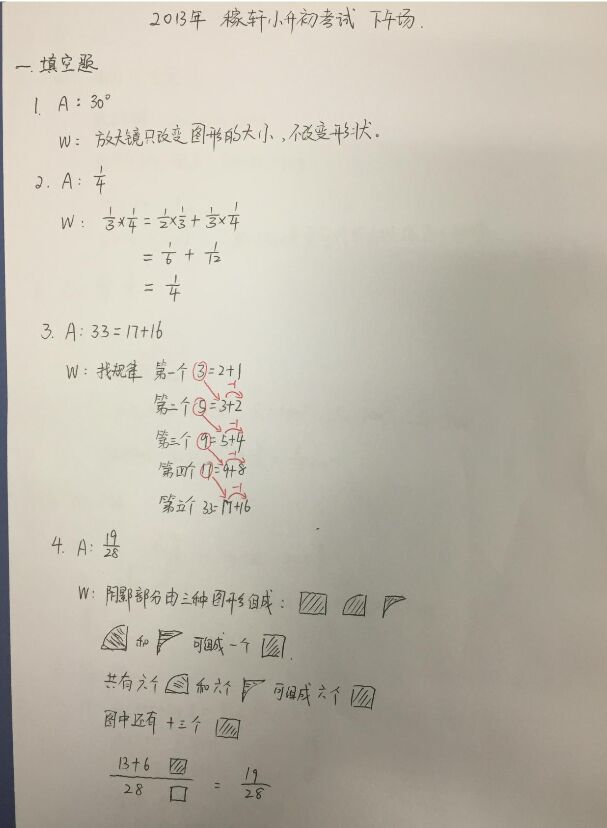 2013年 稼轩小升初考试 下午场.
一.填空题
1. A: 30°
W: 放大镜只改变图形的大小,不改变形状。
2. A: 1/4
W: 1/3×1/4 = 1/2×1/3 + 1/3×1/4
= 1/6 + 1/12
= 1/4
3. A: 33=17+16
W: 找规律 第一个 3=2+1
-1
第二个 5=3+2
-1
第三个 9=5+4
-1
第四个 17=9+8
-1
第五个 33=17+16
4. A: 19/28
W: 阴影部分由三种图形组成:
和 可组成一个 .
共有六个 和六个 可组成六个
图中还有 十三个
13+6 / 28 = 19/28